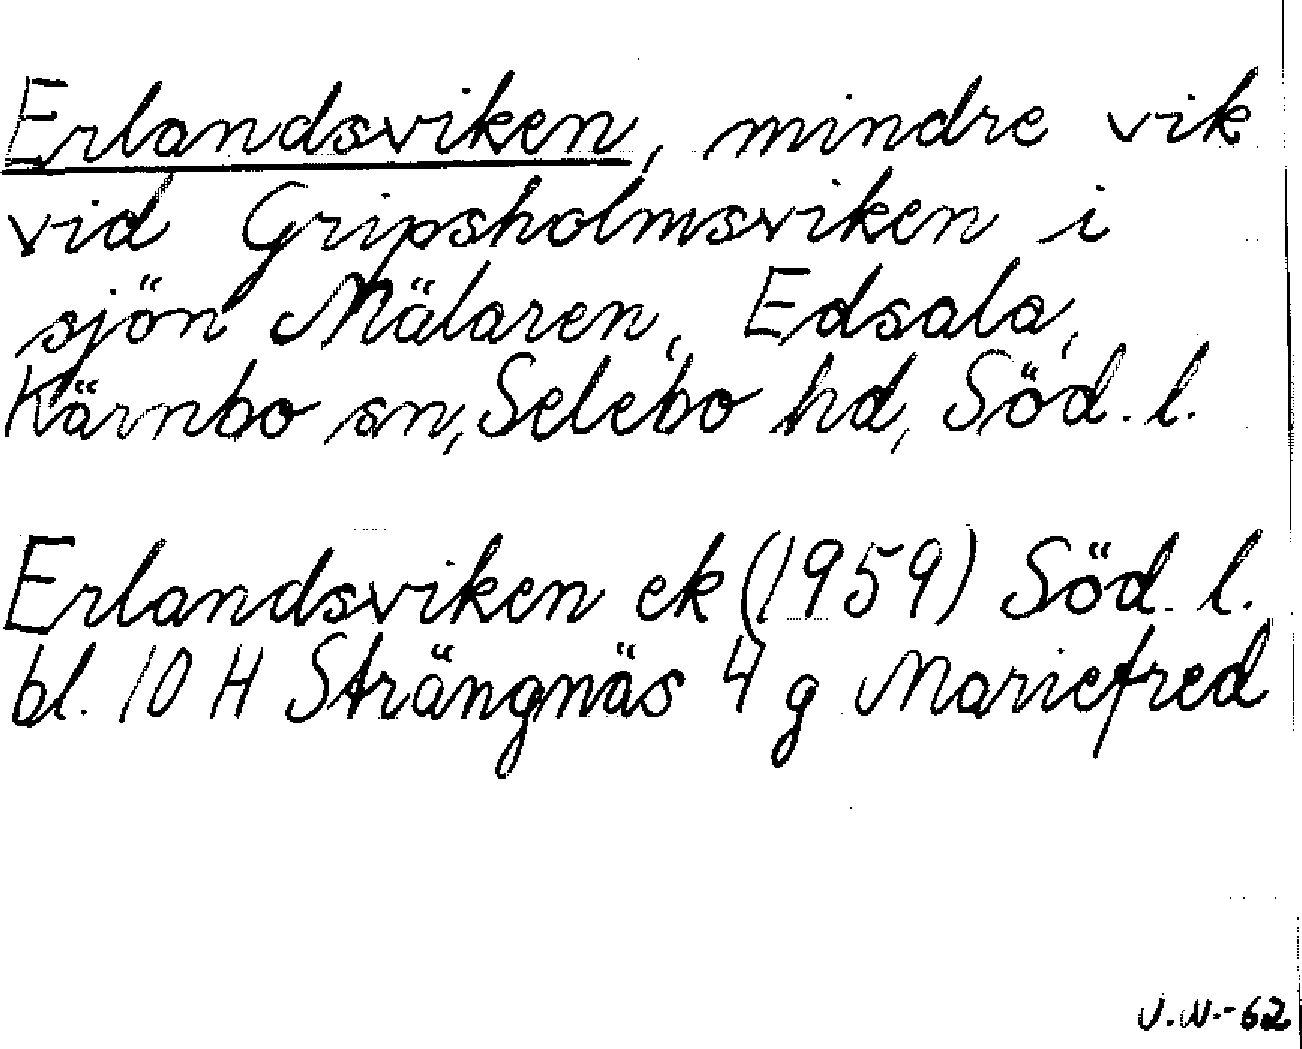 Erlandsviken, mindre vik
vid Gripsholmsviken i
sjön Mälaren, Edsala,
Kärnbo sn, Selebo hd, Söd. l.
Erlandsviken ek (1959) Söd. l.
bl. 10 H Strängnäs 4 g Mariefred
V.W.-62